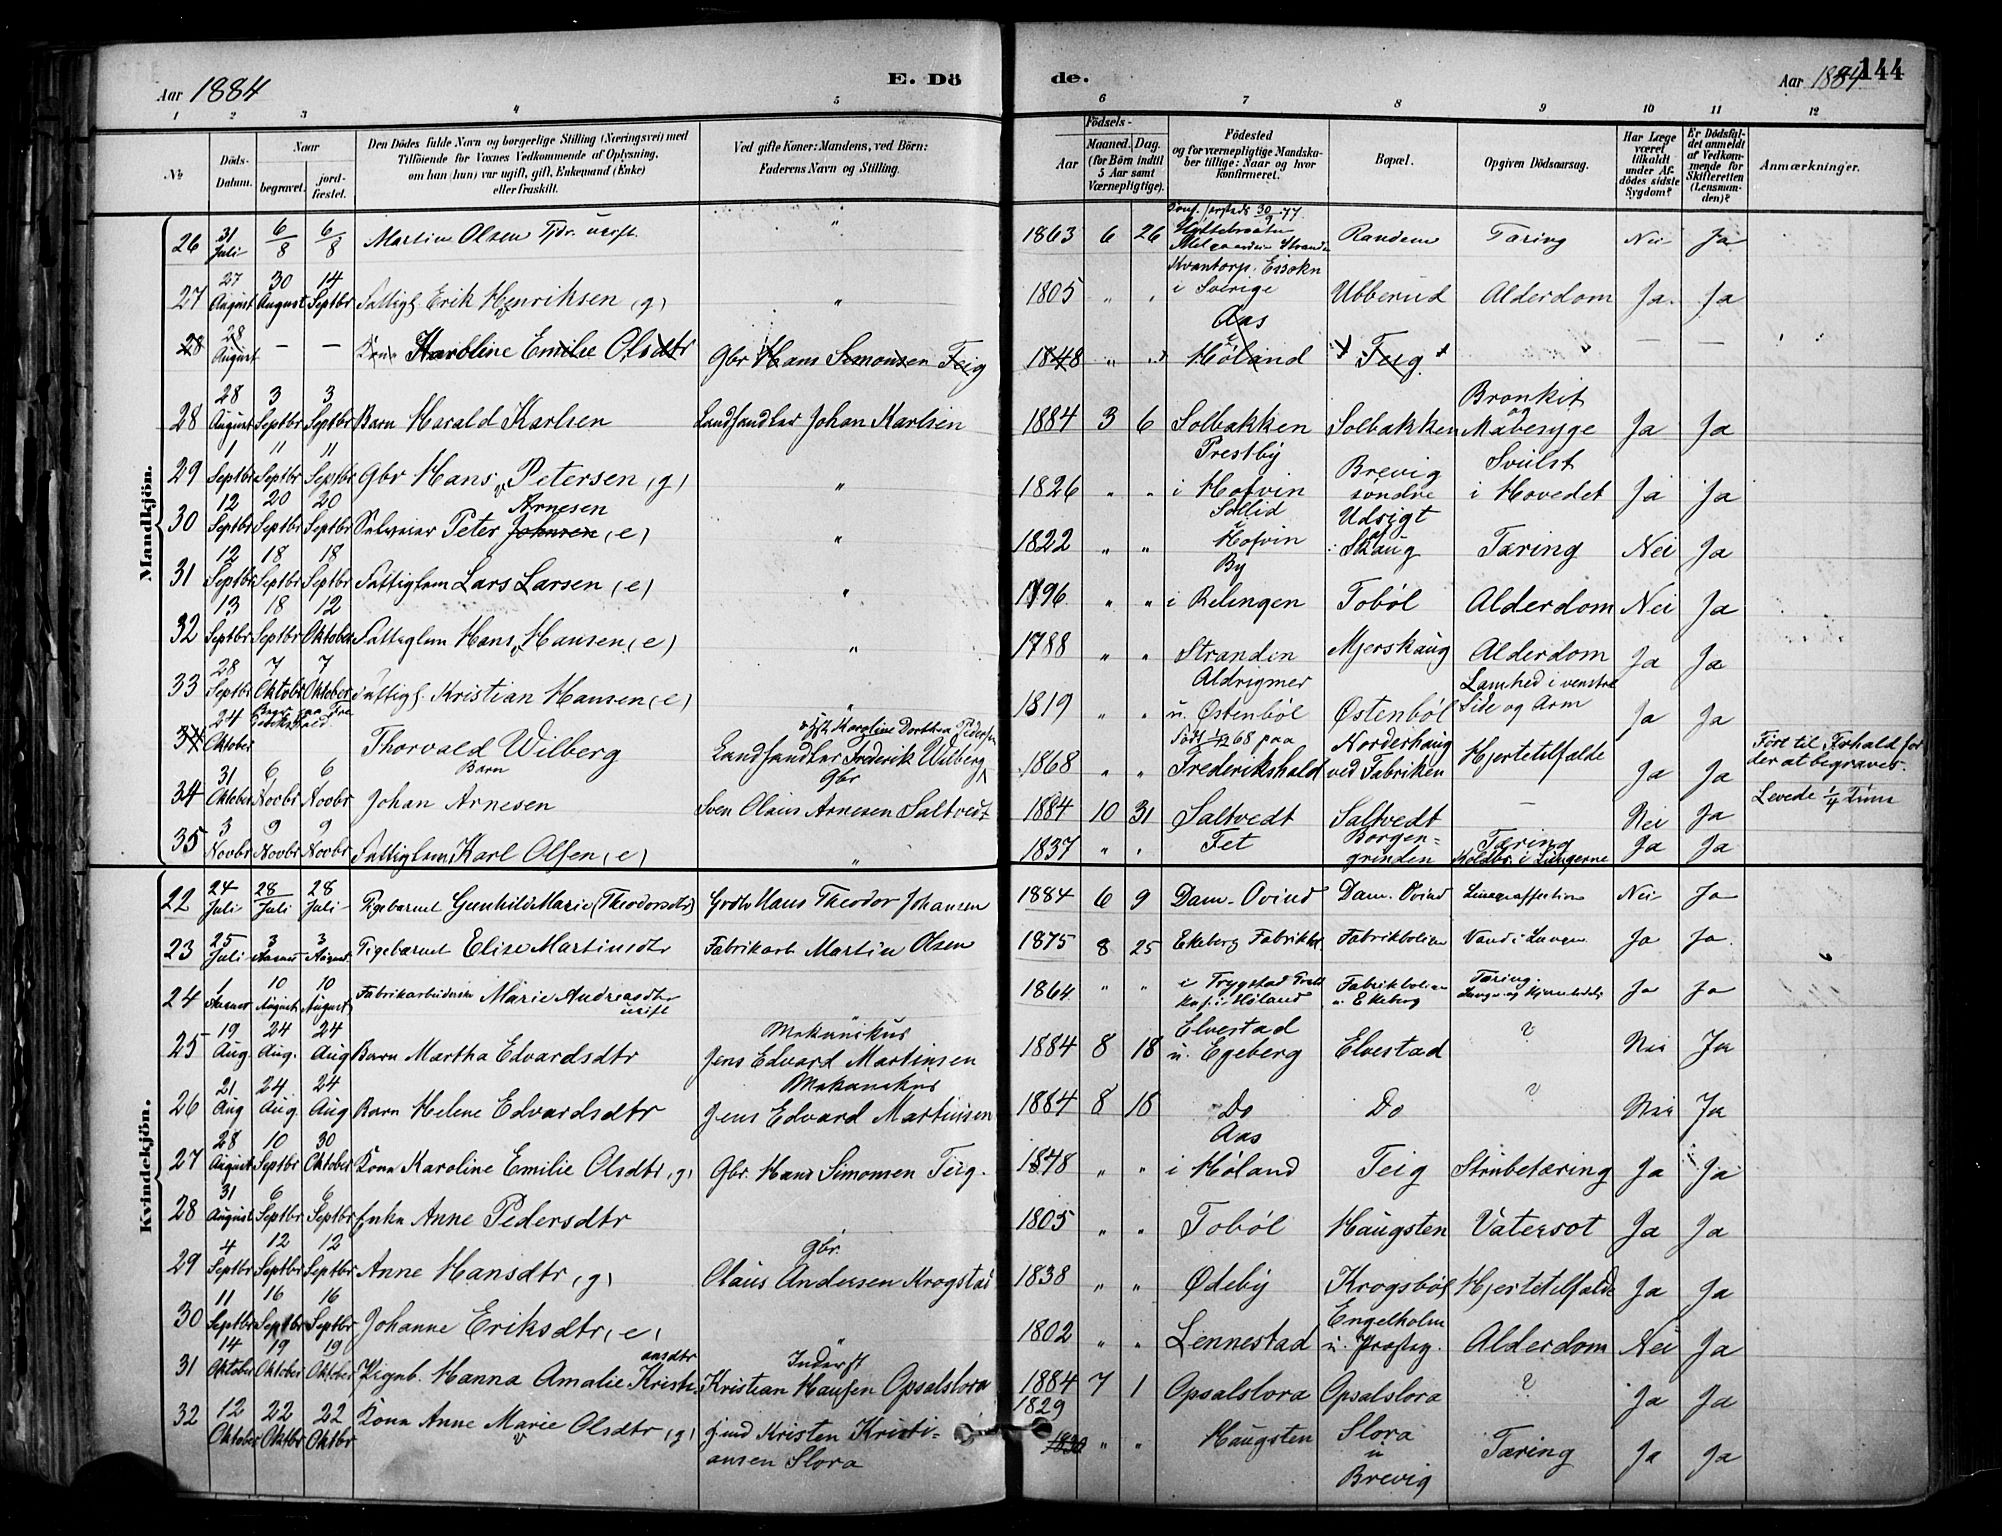 Aar 1884
E. Dö
de.
Aar 1884
144
1 2 3 4 5 6 7 8 9 10 11 12
No
Döds-Datum.
Naar
begravet.
jord-fæstet.
Den Dödes fulde Navn og borgerlige Stilling (Næringsvei) med
Tilföiende for Voxnes Vedkommende af Oplysning,
om han (hun) var ugift, gift, Enkemand (Enke)
eller fraskilt.
Ved gifte Koner: Mandens, ved Börn:
Faderens Navn og Stilling.
Födsels-
Aar
Maaned. Dag.
(for Börn indtil
5 Aar samt
Værnepligtige).
Födested
og for værnepligtige Mandska-
ber tillige: Naar og hvor
konfirmeret.
Bopæl.
Opgiven Dödsaarsag.
Har Læge
været
tilkaldt
under Af-
dödes sidste
Sygdom?
Er Dödsfal-
det anmeldt
af Vedkom-
mende for
Skifteretten
(Lensman-
den)?
Anmærkninger.
Mandkjön.
26 31 Juli 6/8 6/8 Martin Olsen ugift " 1863 6 26 Randem Tæring Nei Ja
27 27 August 30 August 14 Septbr Fattigl Erik Henriksen (g) " 1805 " " i Sverige Ubberud Alderdom Ja Ja
28 28 August — — Kone Karoline Emilie Olsdtr Gbr Hans Simonsen Teig 1848 " " Aas i Høland Teig — —
28 28 August 3 Septbr 3 Septbr Barn Harald Karlsen Landhandler Johan Karlsen 1884 3 6 Solbakken Solbakken Bronkit og Mavesyge Ja Ja
29 1 Septbr 11 Septbr 11 Septbr Gbr Hans Petersen (g) " 1826 " " Prestby i Hofvin Brevig søndre Svülst i Hovedet Ja Ja
30 12 Septbr 20 Septbr 20 Septbr Selveier Peter Johnsen Arnesen (e) " 1822 " " Sollid i Hofvin Udsigt Skaug Tæring Nei Ja
31 12 Septbr 18 Septbr 18 Septbr Fattiglem Lars Larsen (e) " 1796 " " By i Relingen Tobøl Alderdom Nei Ja
32 13 Septbr 18 Septbr 12 Oktober Fattiglem Hans Hansen (e) " 1788 " " Stranden Mjerskaug Alderdom Ja Ja
33 28 Septbr 7 Oktobr 7 Oktober Fattigl. Kristian Hansen (e) " 1819 " " Aldrigmer u. Østenbøl Østenbøl Lamhed i venstre Side og Arm Ja Ja
34 24 Oktober Thorvald Wilberg Landhandler Frederik Wilberg 1868 " " Født 1/12 68 paa Frederikshald Norderhaug ved Fabriken Hjertetilfælde Ja Ja Ført til Frhald for der at begraves.
34 31 Oktober 6 Novbr 6 Novbr Barn Johan Arnesen Gbr Sven Olaus Arnesen Saltvedt 1884 10 31 Saltvedt Saltvedt — Nei Ja Levede 1/4 Time
35 3 Novbr 9 Novbr 9 Novbr Fattiglem Karl Olsen (e) " 1837 " " Fet Borgengrinden Tæring Koldbr. i Lungerne Ja Ja
Kvindekjön.
22 24 Juli 28 Juli 28 Juli Pigebarnet Gunhild Marie (Theodorsdtr) Hans Theodor Johansen 1884 6 9 Dam-Ovind Dam. Ovind Lungeaffection Nei Ja
23 25 Juli 3 August 3 August Pigebarnet Elise Martinsdtr Fabrikarb Martin Olsen 1875 8 25 Ekeberg Fabrikbol Fabrikbolien Vand i Lungen Ja Ja
24 1 August 10 August 10 August Fabrikarbeiderske Marie Andreasdtr ugift 1864 " " i Høland Fabrikbolien u. Ekeberg Tæring. Ja Ja
25 19 Aug 24 Aug. 24 Aug Barn Martha Edvardsdtr Mekanikus Jens Edvard Martinsen 1884 8 18 Elvestad u. Egeberg Elvestad ? Nei Ja
26 21 Aug 24 Aug 24 Aug Barn Helene Edvardsdtr Mekanikus Jens Edvard Martinsen 1884 8 18 Do Do ? Nei Ja
27 28 August 10 Septbr 30 Oktober Kone Karoline Emilie Olsdtr (g) Gbr. Hans Simonsen Teig. 1848 " " Aas i Høland Teig Strubetæring Ja Ja
28 31 August 6 Septbr 6 Septbr Enke Anne Pedersdtr 1805 " " Tobøl Haugsten Vatersot Ja Ja
29 4 Septbr 12 Septbr 12 Septbr Anne Hansdtr (g) Gbr. Olaus Andersen Krogstad 1838 " " Ødeby Krogsbøl Hjertetilfælde Ja Ja
30 11 Septbr 16 Septbr 16 Septbr Johanne Eriksdtr (e) " 1802 " " Lennestad Engelholm u. Præsteg. Alderdom Nei Ja
31 14 Oktober 19 Oktober 19 Oktober Pigeb. Hanna Amalie Kristiansdtr Inderst Kristian Hansen Opsalslora 1884 7 1 Opsalslora Opsalslora ? Ja Ja
32 12 Oktober 22 Oktbr 22 Oktbr Kone Anne Marie Olsdtr (g) Ind Kristen Kristi-
ansen Slora 1829 1830 " " Haugsten Slora u Brevig Tæring Ja Ja